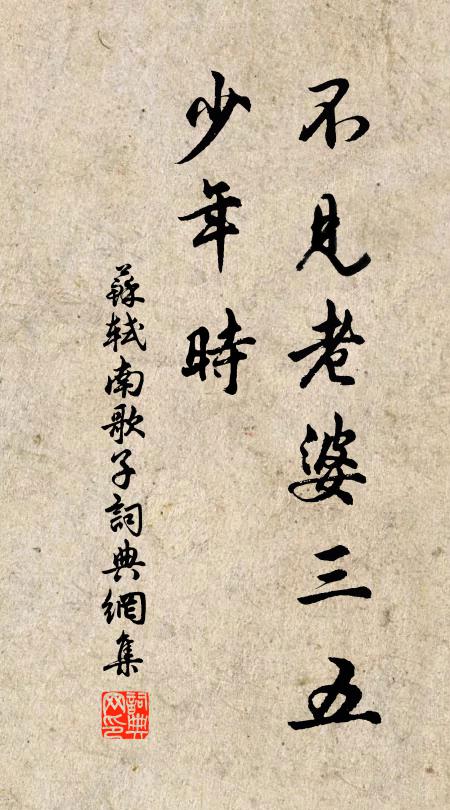 不見老婆三五
少年時
蘇軾南歌子詞典網集
詞典网印